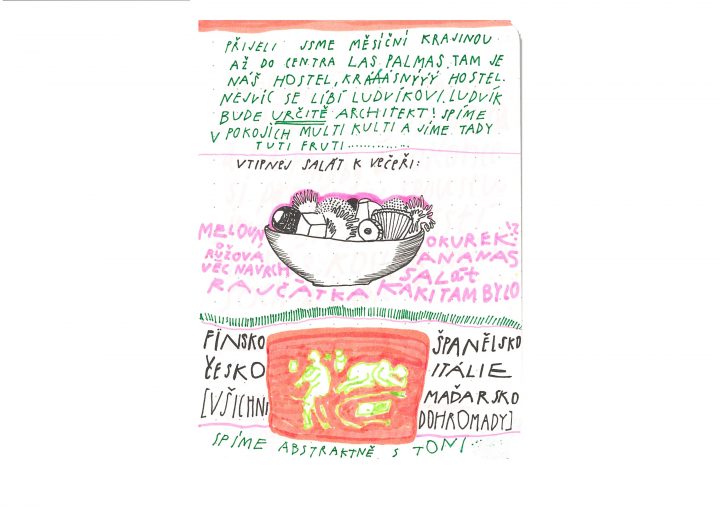 PŘIJELI JSME MĚSÍČNÍ KRAJINOU
AŽ DO CENTRA LAS PALMAS. TAM JE
NÁŠ HOSTEL, KRÁÁÁSNÝÝÝ HOSTEL.
NEJVÍC SE LÍBÍ LUDVÍKOVI. LUDVÍK
BUDE URČITĚ ARCHITEKT! SPÍME
V POKOJÍCH MULTI KULTI A JÍME TADY
TUTI FRUTI..............
VTIPNEJ SALÁT K VEČEŘI:
MELOUN,
RŮŽOVÁ
VĚC NAVRCH
OKUREK?
ANANAS
SALÁT
RAJČÁTKA KAKI TAM BYLO
FINSKO
ČESKO
[VŠICHNI
ŠPANĚLSKO
ITÁLIE
MAĎARSKO
DOHROMADY]
SPÍME ABSTRAKTNĚ S TONI......